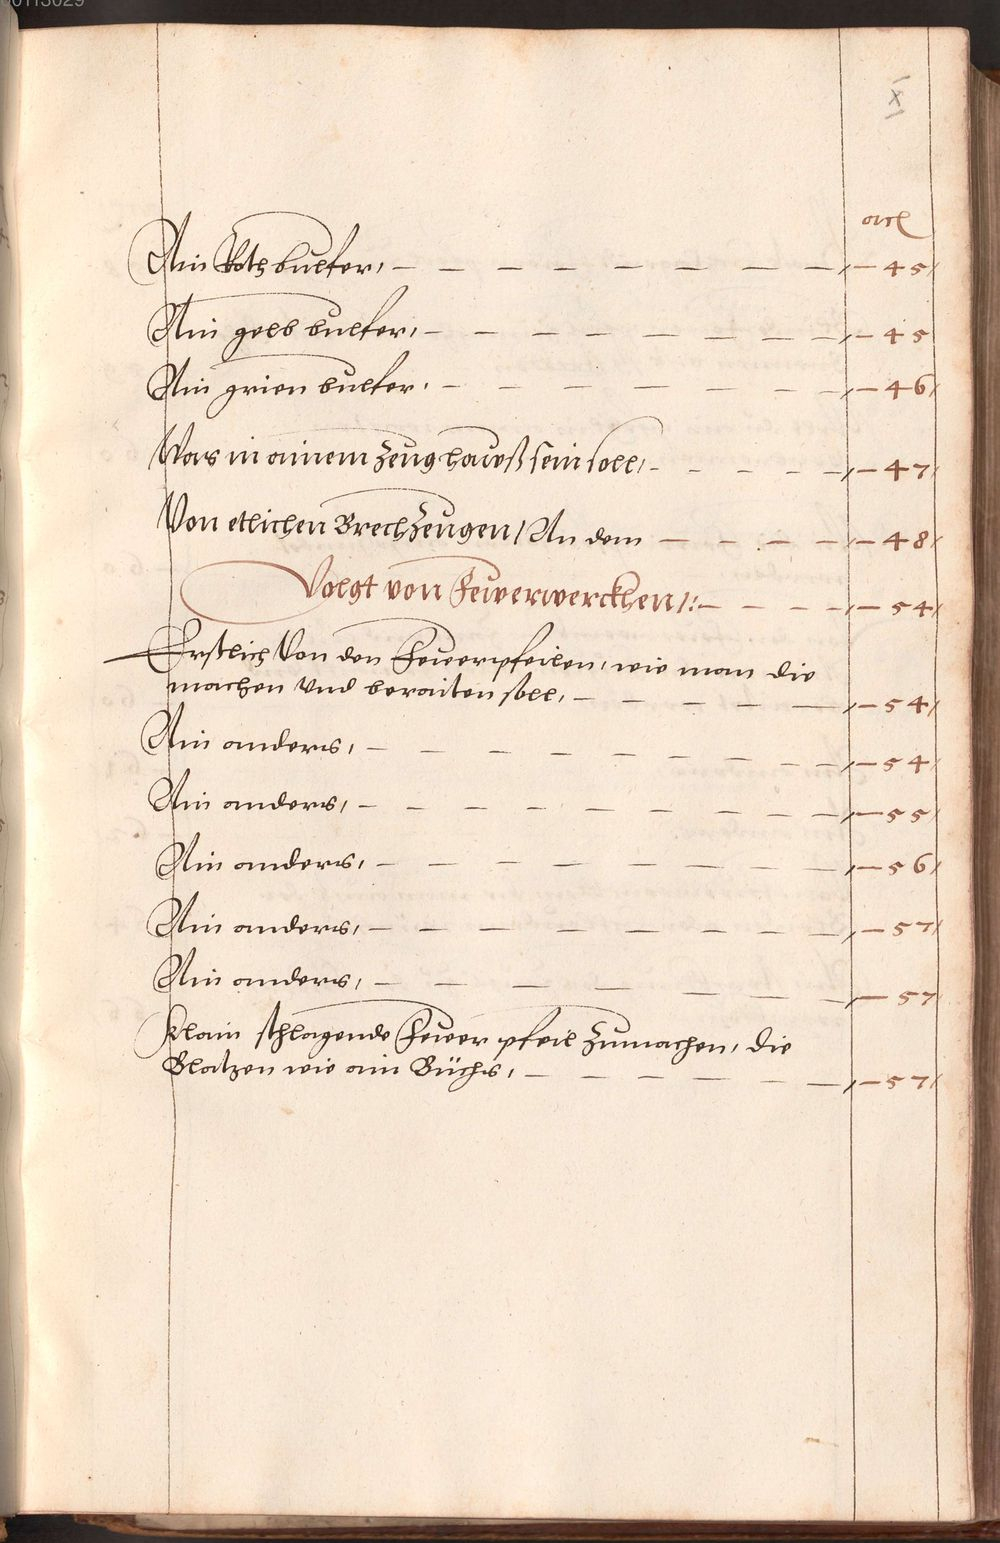 00113029
X
Ain Roth bulfer, 45
Ain gelb bulfer, 45
Ain grien bulfer. 46
Was in ainem Zeughauß sein soll, 47
Von etlichen Brechzeugen / An dem 48
Volgt von Fewerwerckhen /: 54
Erstlich Von den Fewerpfeilen, wie man die
machen vnd beraiten soll, 54
Ain anders, 54
Ain anders, 55
Ain anders, 56
Ain anders, 57
Ain anders, 57
Klain schlagende Fewer pfeil Zumachen, die
Blatzen wie ain Büchs, 57